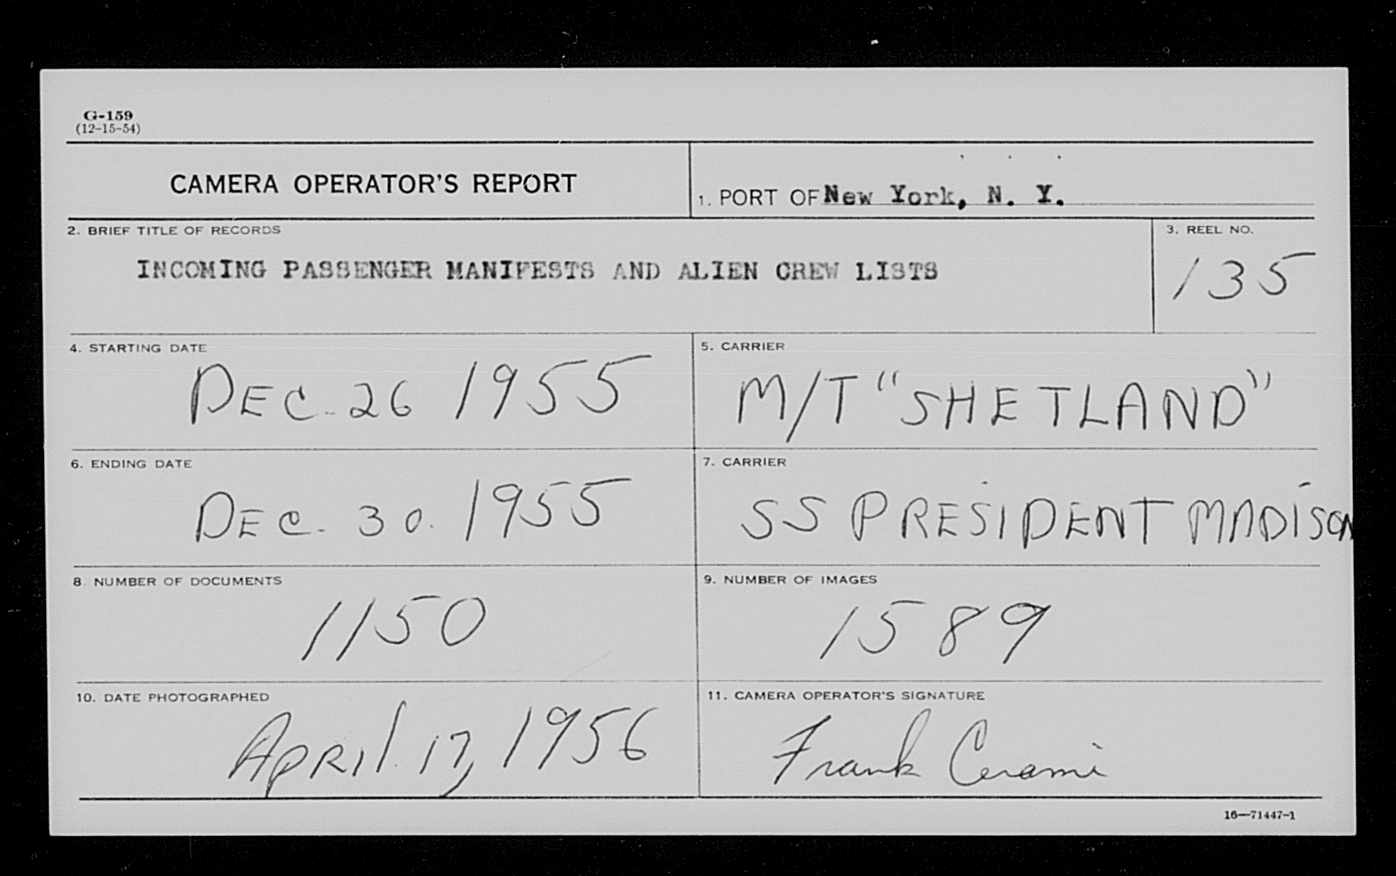 G-159
(12-15-54)
CAMERA OPERATOR'S REPORT
1. PORT OF New York, N. Y.
2. BRIEF TITLE OF RECORDS
INCOMING PASSENGER MANIFESTS AND ALIEN CREW LISTS
3. REEL NO.
135
4. STARTING DATE
DEC. 26 1955
5. CARRIER
M/T "SHETLAND"
6. ENDING DATE
DEC. 30. 1955
7. CARRIER
SS PRESIDENT MADISON
8. NUMBER OF DOCUMENTS
1150
9. NUMBER OF IMAGES
1589
10. DATE PHOTOGRAPHED
APRIL. 17, 1956
11. CAMERA OPERATOR'S SIGNATURE
Frank Cerami
16—71447-1